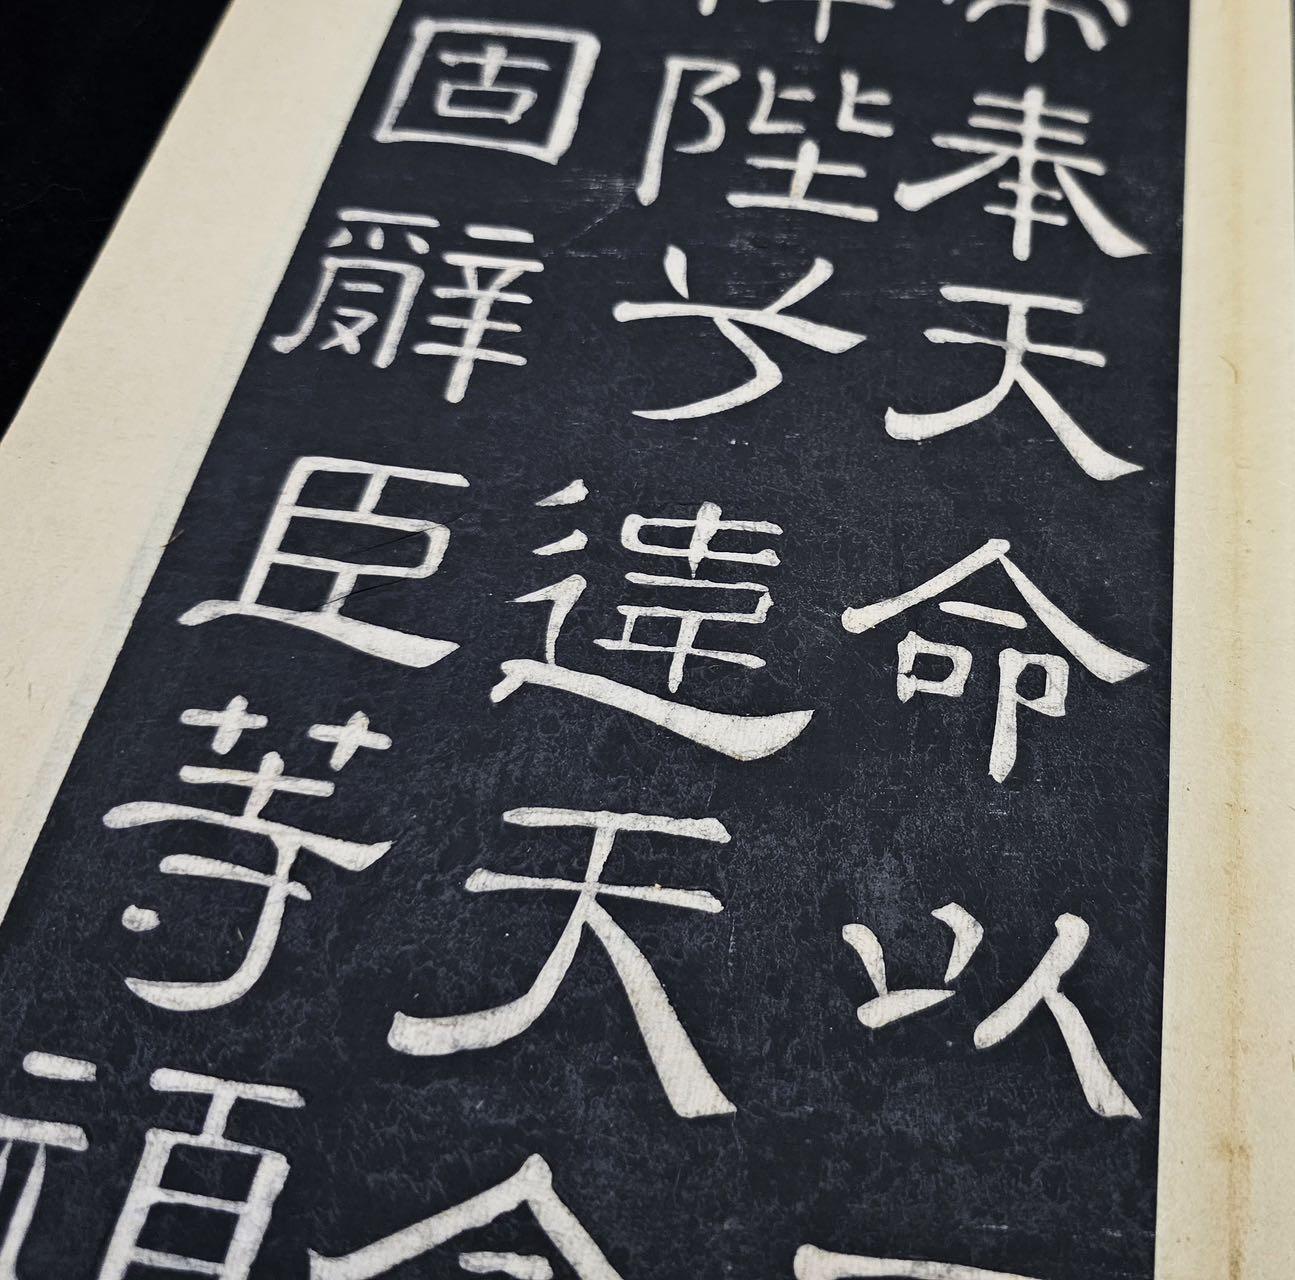 奉天命以
陛兮違天
固辭臣等頑